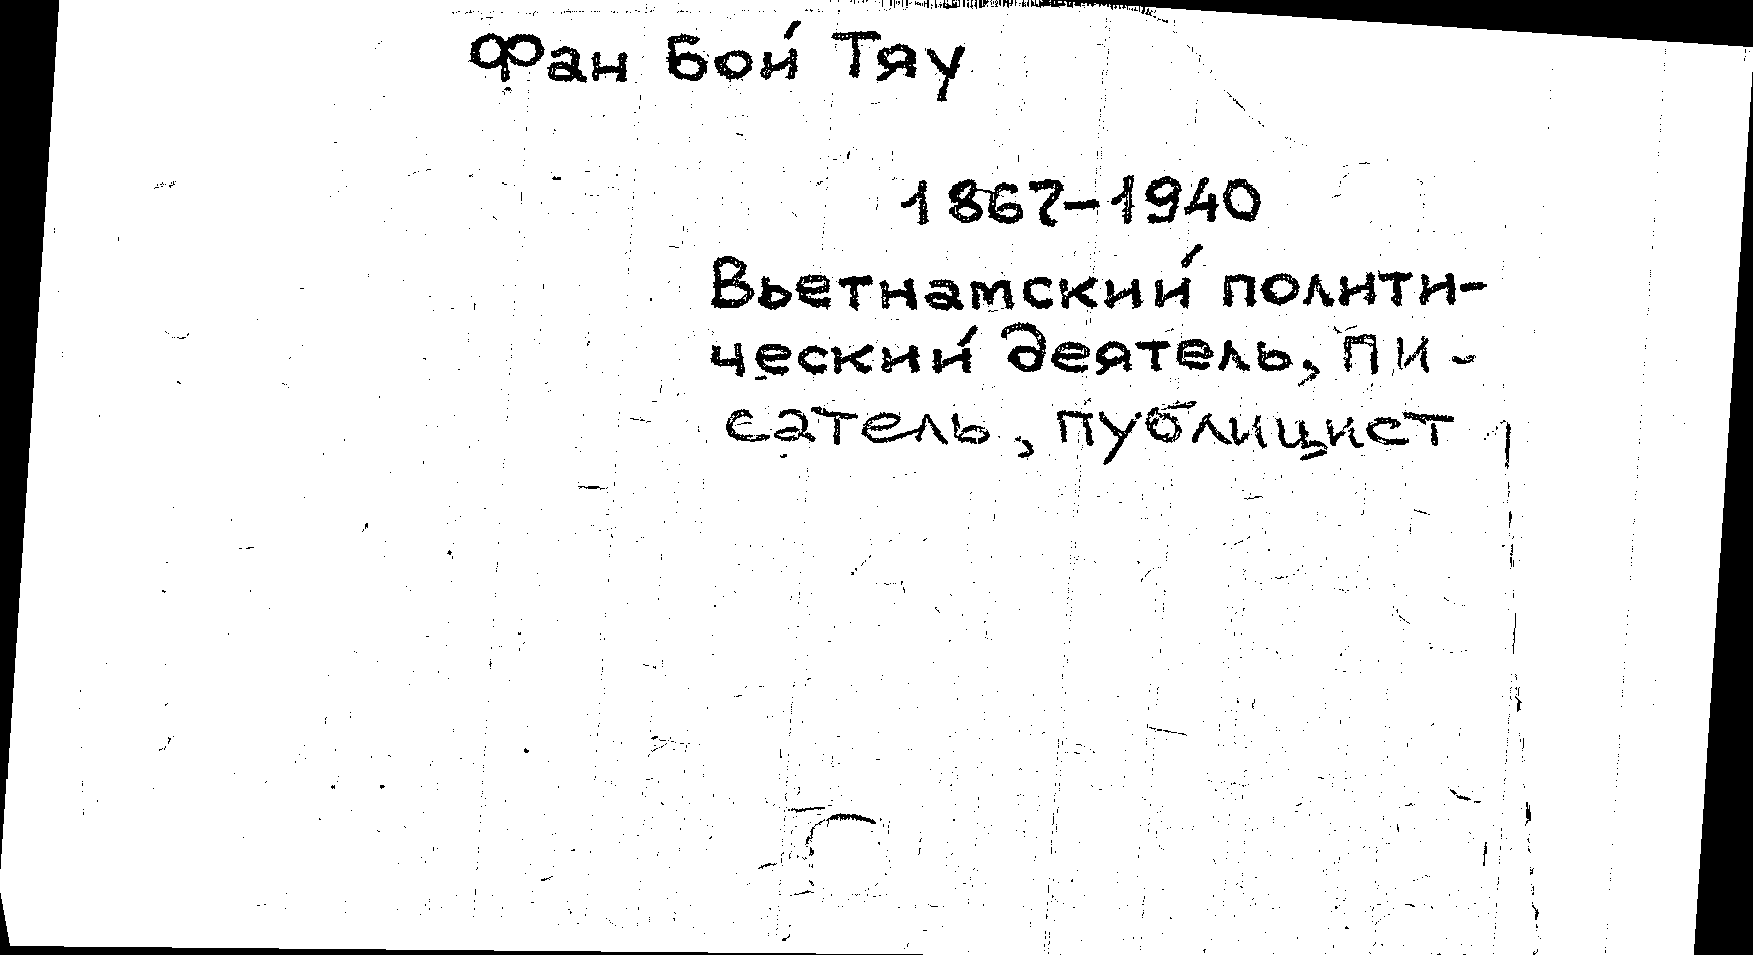 Фан Бой Тяу
1867-1940
Вьетнамский полити-
ческий деятель, пи-
сатель, публицист